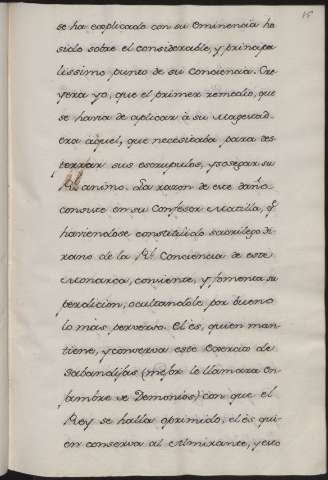 15
se ha explicado con su Eminencia ha
sido sobre el considerable, y principa
lissimo punto de su conciencia. Cre
yera yo, que el primer remedio, que
se havia de aplicar à su Magestad
era àquel, que necesitaba para des
terrar sus escrupulos, y sosegar su
Rl. animo. La razon de este daño
consiste en su Confesor Matilla, q.
haviendose constituìdo sacrilego ti
rano de la Rl. Conciencia de este
Monarca, conviente, y fomenta su
perdicion, ocultandole por bueno
lo màs perverso. El ès, quien man
tiene, y conserva este Exercito de
Sabandijas (mejor le llamara En
jambre de Demonios) con que el
Rey se halla oprimido, el ès qui-
en conserva al Almirante, y esto